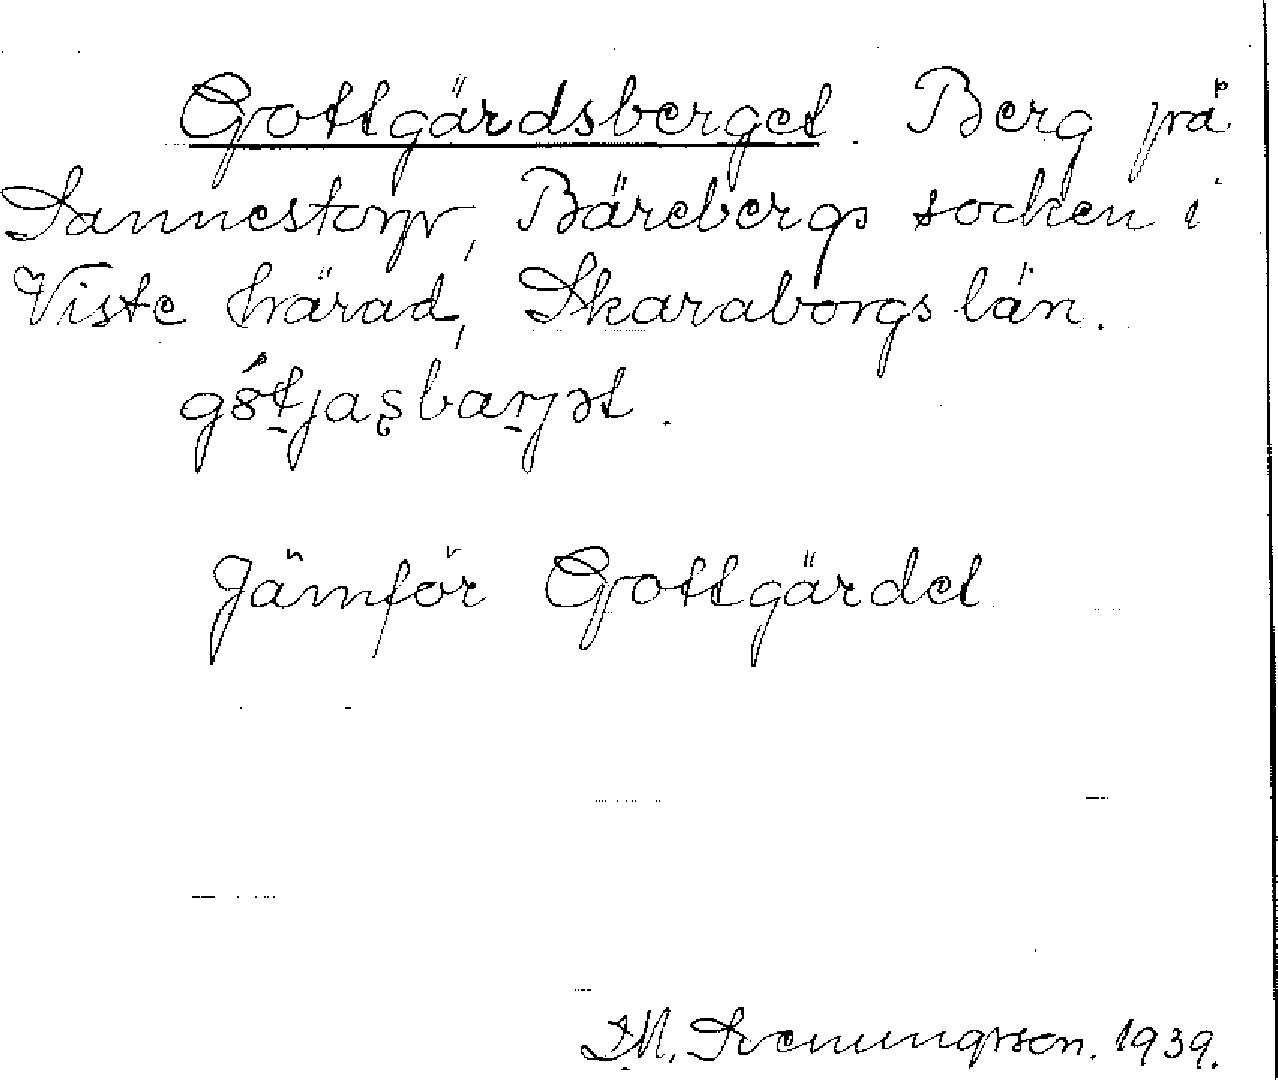 Gottgärdsberget. Berg på
Sannestorp, Bärebergs socken i
Viste härad, Skaraborgs län.
Jämför Gottgärdet
D.M. Svenungsson. 1939.